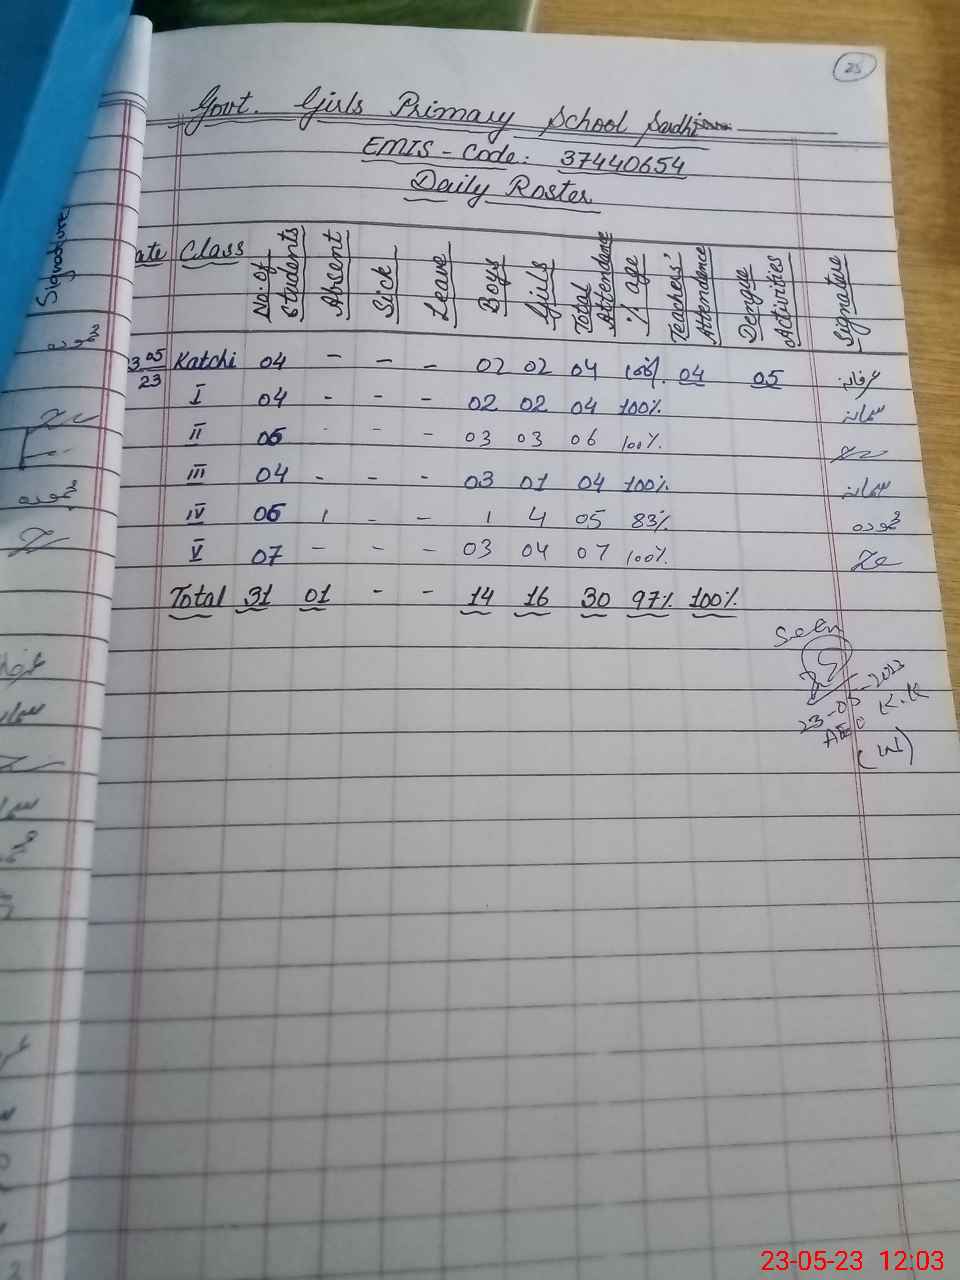 25
Govt. Girls Primary School Sadhi
EMIS - Code: 37440654
Daily Roster
ate Class No. of Students Absent Sick Leave Boys Girls Total Attendence % age Teachers' Attendence Dengue Activities Signature
3 05/23 Katchi 04 - - - 02 02 04 100% 04 05 عرفانہ
I 04 - - - 02 02 04 100% سمانہ
II 06 - - - 03 03 06 100%
III 04 - - - 03 01 04 100% سمانہ
IV 06 1 - - 1 4 05 83%
V 07 - - - 03 04 07 100%
Total 31 01 - - 14 16 30 97% 100%
Seen
23-05-2023
AEO K.K
(W)
Signature
23-05-23 12:03